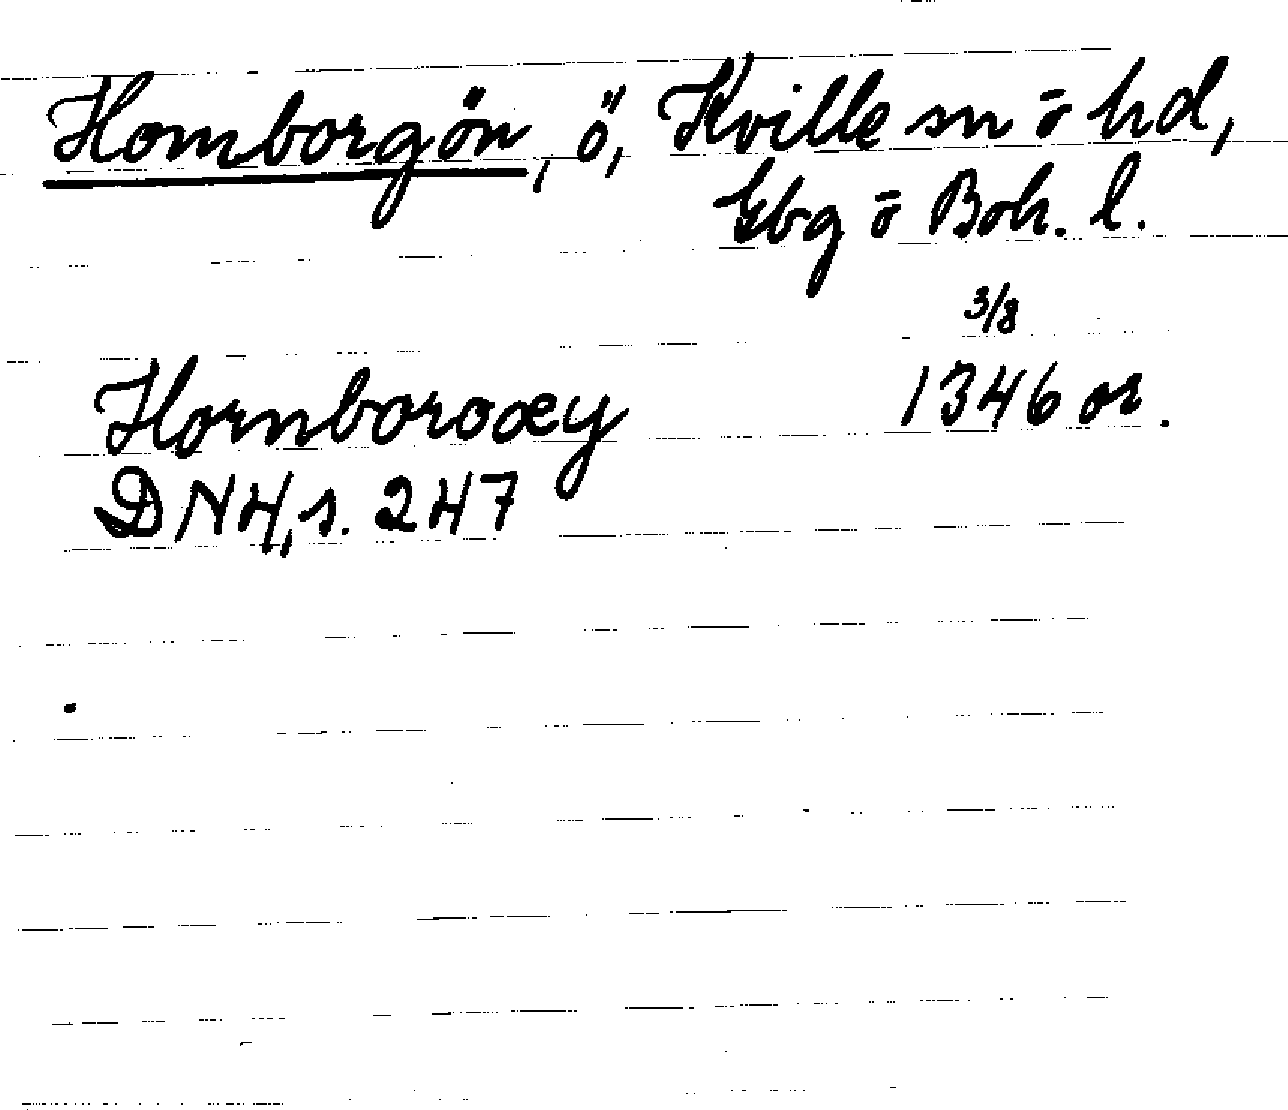 Homborgön, ö, Kville sn ō hd,
Gbg ō Boh. l.
3/8
Hornboroœy 1346 or.
DN 4, s. 247